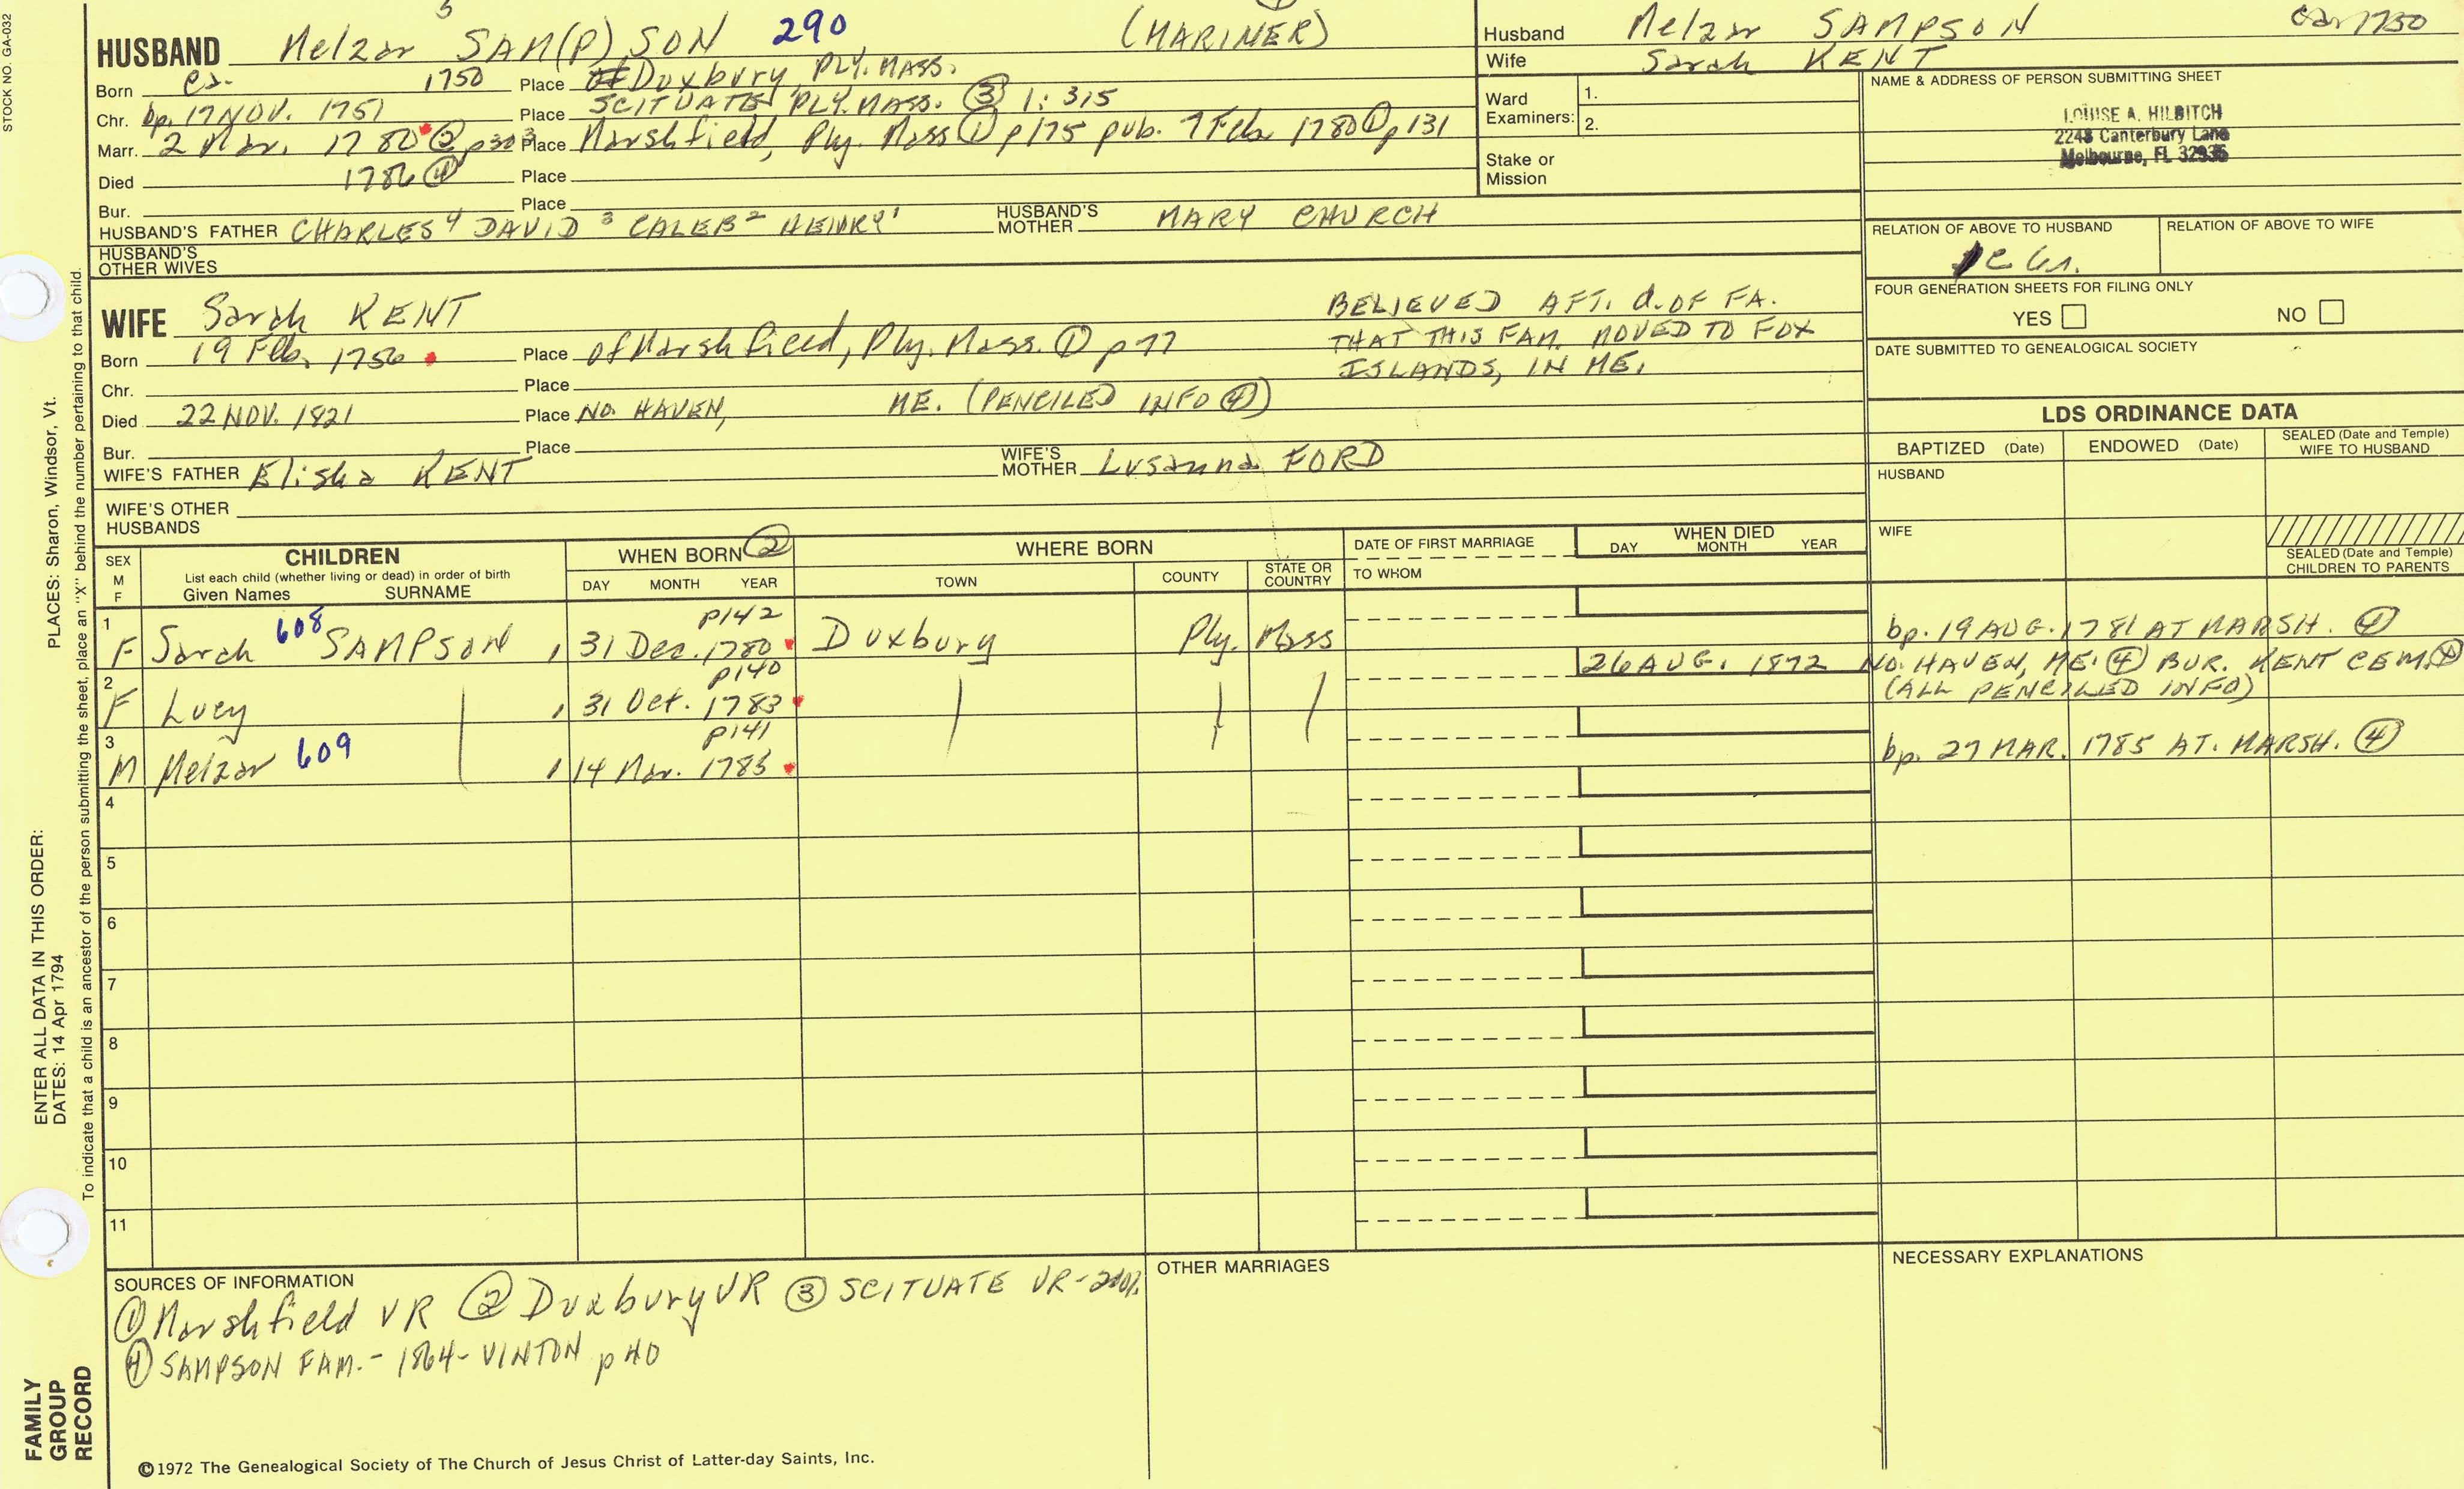 STOCK NO. GA-032
5
HUSBAND Melzar SAM(P)SON 290 (MARINER)
Born ca. 1750 Place Duxbury, PLY. MASS.
Chr. bp. 17 NOV. 1751 Place SCITUATE PLY. MASS. ③ 1:315
Marr. 2 Mar. 1780 ② p303 Place Marshfield, Ply. Mass ① p175 pub. 7 Feb 1780 ① p131
Died 1786 ④ Place
Bur. Place
HUSBAND'S FATHER CHARLES⁴ DAVID³ CALEB² HENRY¹ HUSBAND'S MOTHER MARY CHURCH
HUSBAND'S OTHER WIVES
WIFE Sarah KENT
Born 19 Feb. 1756 Place of Marshfield, Ply. Mass. ① p77
Chr. Place
Died 22 NOV. 1821 Place NO. HAVEN, ME. (PENCILED INFO ④)
Bur. Place
BELIEVED AFT. d. OF FA.
THAT THIS FAM. MOVED TO FOX
ISLANDS, IN ME.
WIFE'S FATHER Elisha KENT WIFE'S MOTHER Lusanna FORD
WIFE'S OTHER HUSBANDS
Husband Melzar SAMPSON ca 1750
Wife Sarah KENT
Ward Examiners: 1.
2.
Stake or Mission
NAME & ADDRESS OF PERSON SUBMITTING SHEET
LOUISE A. HILBITCH
2243 Canterbury Lane
Melbourne, FL 32935
RELATION OF ABOVE TO HUSBAND RELATION OF ABOVE TO WIFE
FOUR GENERATION SHEETS FOR FILING ONLY
YES NO
DATE SUBMITTED TO GENEALOGICAL SOCIETY
LDS ORDINANCE DATA
BAPTIZED (Date) ENDOWED (Date) SEALED (Date and Temple) WIFE TO HUSBAND
HUSBAND
WIFE
SEALED (Date and Temple) CHILDREN TO PARENTS
SEX M F
CHILDREN
List each child (whether living or dead) in order of birth
Given Names SURNAME
WHEN BORN ②
DAY MONTH YEAR
WHERE BORN
TOWN COUNTY STATE OR COUNTRY
DATE OF FIRST MARRIAGE
TO WHOM
WHEN DIED
DAY MONTH YEAR
p142
1 F Sarah 608 SAMPSON 31 Dec. 1780 Duxbury Ply. Mass bp. 19 AUG. 1781 AT MARSH. ④
p140
26 AUG. 1872 NO. HAVEN, ME. ④ BUR. KENT CEM. ④
2 F Lucy 31 Oct. 1783 (ALL PENCILED INFO)
p141
3 M Melzar 609 14 Mar. 1785 bp. 27 MAR. 1785 AT. MARSH. ④
4
5
6
7
8
9
10
11
SOURCES OF INFORMATION
① Marshfield VR ② Duxbury VR ③ SCITUATE VR-2vol.
④ SAMPSON FAM. - 1864 - VINTON p40
OTHER MARRIAGES
NECESSARY EXPLANATIONS
©1972 The Genealogical Society of The Church of Jesus Christ of Latter-day Saints, Inc.
PLACES: Sharon, Windsor, Vt.
ENTER ALL DATA IN THIS ORDER:
DATES: 14 Apr 1794
To indicate that a child is an ancestor of the person submitting the sheet, place an "X" behind the number pertaining to that child.
FAMILY
GROUP
RECORD